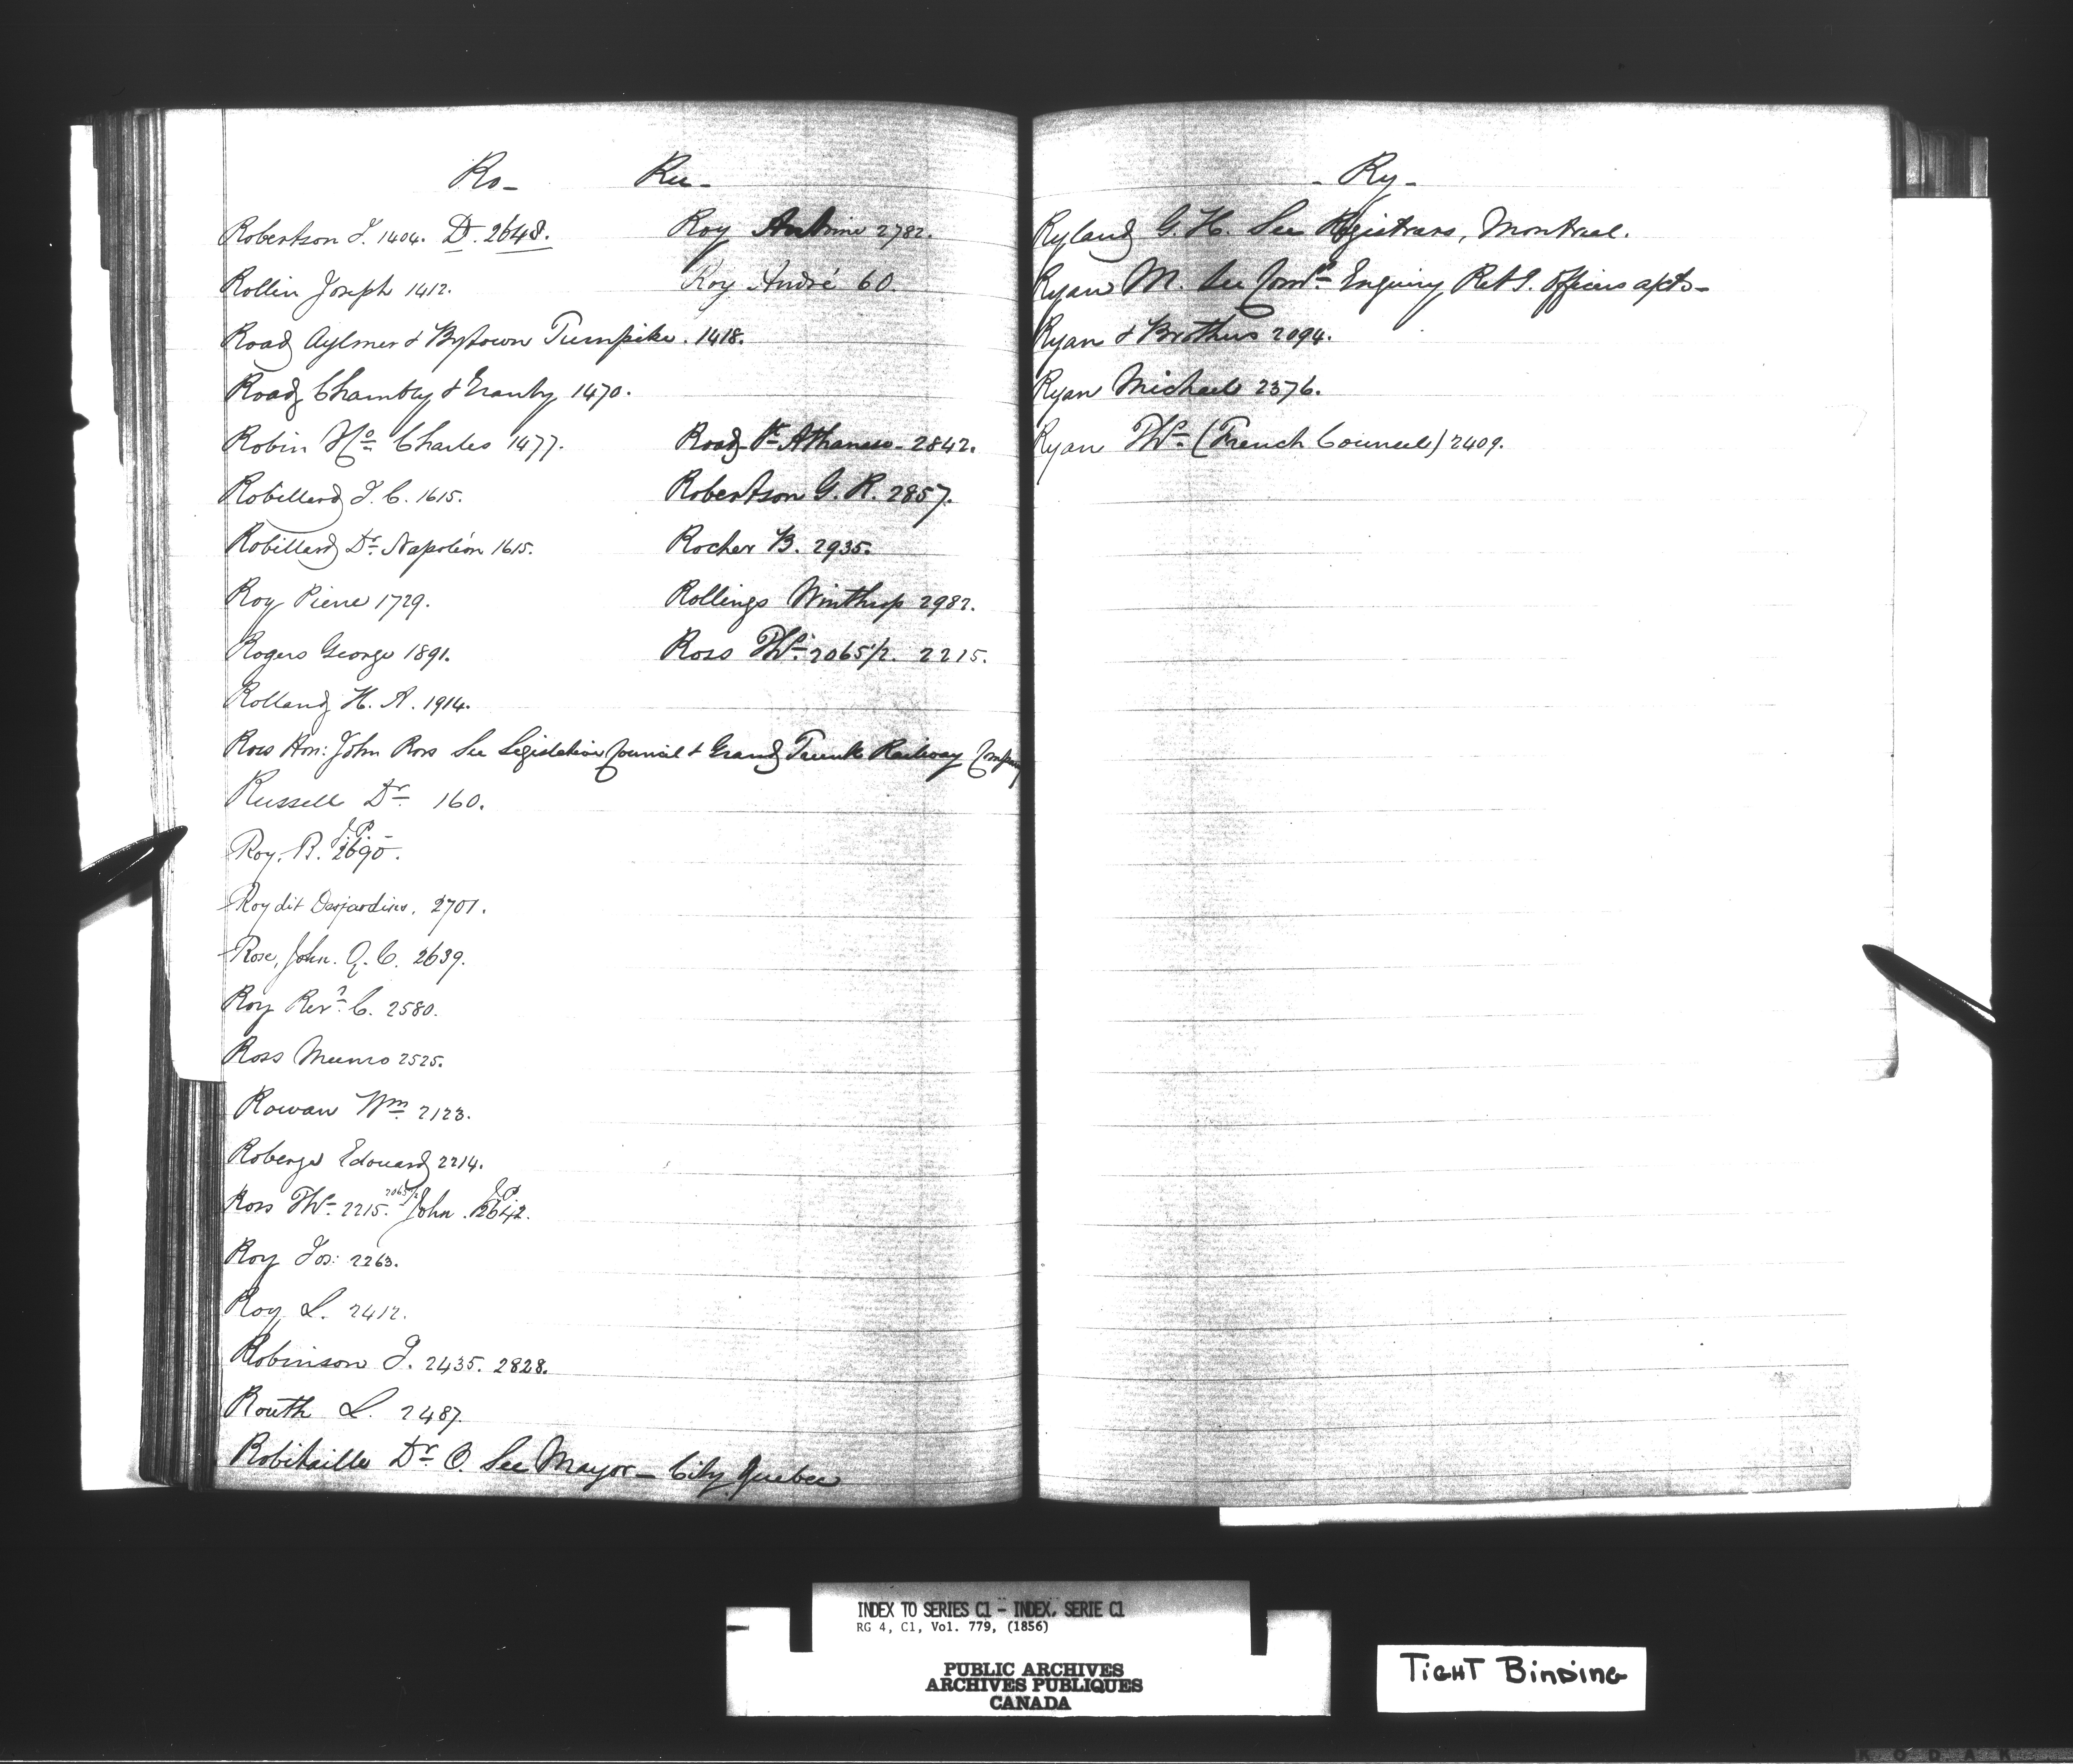 Ro- Ru-
Robertson J. 1404. D. 2648.
Rollin Joseph 1412.
Road Aylmer & Bytown Turnpike. 1418.
Road Chambly & Granby 1470.
Robin & Co Charles 1477.
Robillard J. C. 1615.
Robillard Dr. Napoléon 1615.
Roy Pierre 1729.
Rogers George 1891.
Rolland H. A. 1914.
Ross Hon: John Ross See Legislative Council & Grand Trunk Railway Company
Russell Dr. 160.
Roy. R. J.P. 2690.
Roy dit Desjardins. 2701.
Rose, John. Q. C. 2639.
Roy Revd. C. 2580.
Ross Munro 2525.
Rowan Wm 2123.
Roberge Edouard 2214.
Ross Ths. 2215. 2065/2 John. J.P. 2642.
Roy Jos: 2263.
Roy L. 2412.
Robinson J. 2435. 2828.
Routh L. 2487.
Robitaille Dr. O. See Mayor - City Quebec
Roy Antoine 2782.
Roy André 60.
Road St Athanase - 2842.
Robertson G. R. 2857.
Rocher B. 2935.
Rollings Winthrop 2982.
Ross Ths. 2065/2. 2215.
- Ry -
Ryland G. H. See Registrars, Montreal.
Ryan M. See Comrs Enquiry Ret G. Officers apts -
Ryan & Brothers 2094.
Ryan Michael 2376.
Ryan Ths. (French Council) 2409.
INDEX TO SERIES C1 - INDEX, SERIE C1
RG 4, C1, Vol. 779, (1856)
PUBLIC ARCHIVES
ARCHIVES PUBLIQUES
CANADA
TIGHT BINDING